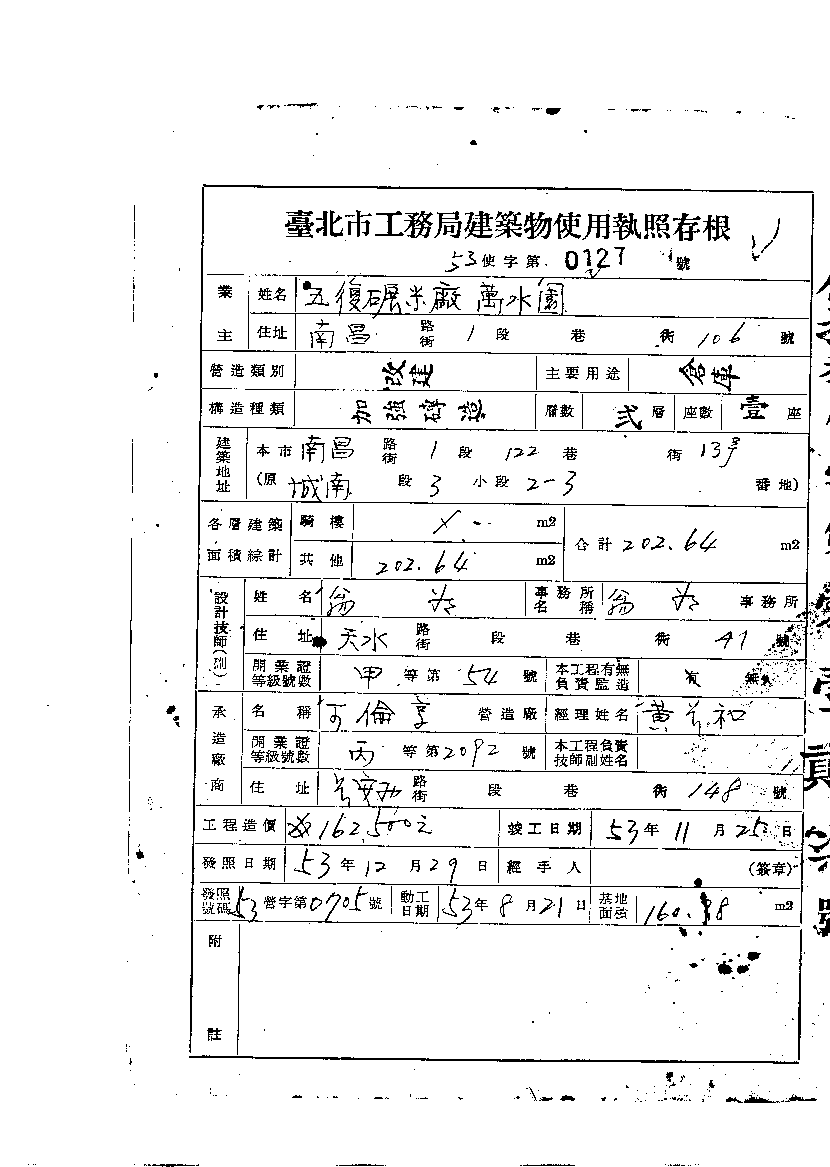 臺北市工務局建築物使用執照存根
53使字第0127號
業主 姓名 五復碾米廠 萬水園
住址 南昌 路街 1段 巷 街 106 號
營造類別 改建 主要用途 倉庫
構造種類 加強磚造 層數 弍層 座數 壹座
建築地址 本市南昌 路街 1段 122巷 街 13號
(原 城南 段 3 小段 2-3 番地)
各層建築面積綜計 騎樓 m2 合計 202.64 m2
其他 202.64 m2
設計技師(副) 姓名 翁 事務所名稱 翁 事務所
住址 天水 路街 段 巷 街 41 號
開業證等級號數 甲等第54號 本工程有無負責監造 有 無
承造廠商 名稱 營造廠 經理姓名 黃 和
開業證等級號數 丙等第2092號 本工程負責技師副姓名
住址 路街 段 巷 街 148 號
工程造價 162,500元 竣工日期 53年11月25日
發照日期 53年12月29日 經手人 (簽章)
發照號碼 53營字第0705號 動工日期 53年8月21日 基地面積 160. 8 m2
附註